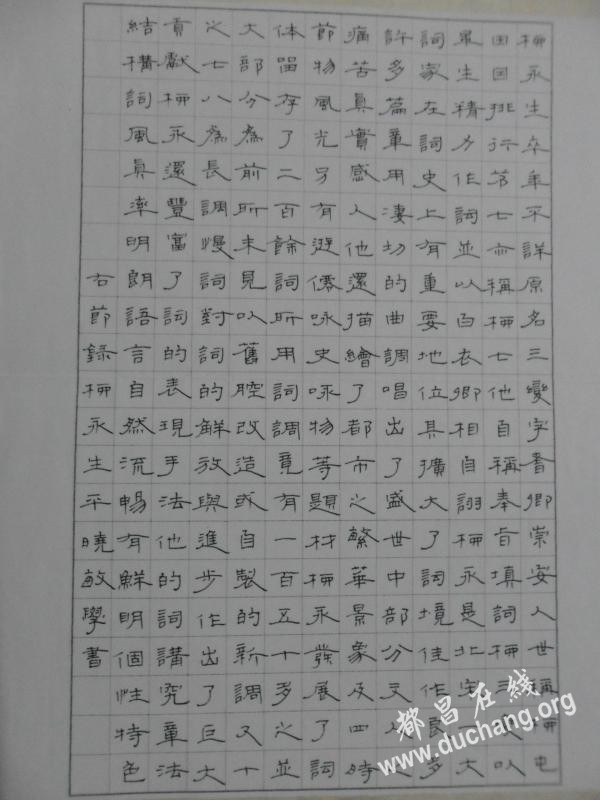 柳永生卒年不詳原名三變字耆卿崇安人世稱柳屯
田因排行第七亦稱柳七他自稱奉旨填詞柳三以
畢生精力作詞並以白衣卿相自詡柳永是北宋大
詞家在詞史上有重要地位其擴大了詞境佳作多
許多篇章用凄切的曲調唱出了盛世中部分文人
痛苦真實感人他還描繪了都市之繁華景象及四時
節物風光另有遊僊咏史咏物等題材柳永發展了詞
体留存了二百餘詞所用詞調竟有一百五十多之並
大部分為前所未見以舊腔改造或自製的新調又十
之七八為長調慢詞對詞的解放與進步作出了巨大
貢獻柳永還豐富了詞的表現手法他的詞講究章法
結構詞風真率明朗語言自然流暢有鮮明個性特色
右節錄柳永生平曉敏學書
都昌在线
www.duchang.org